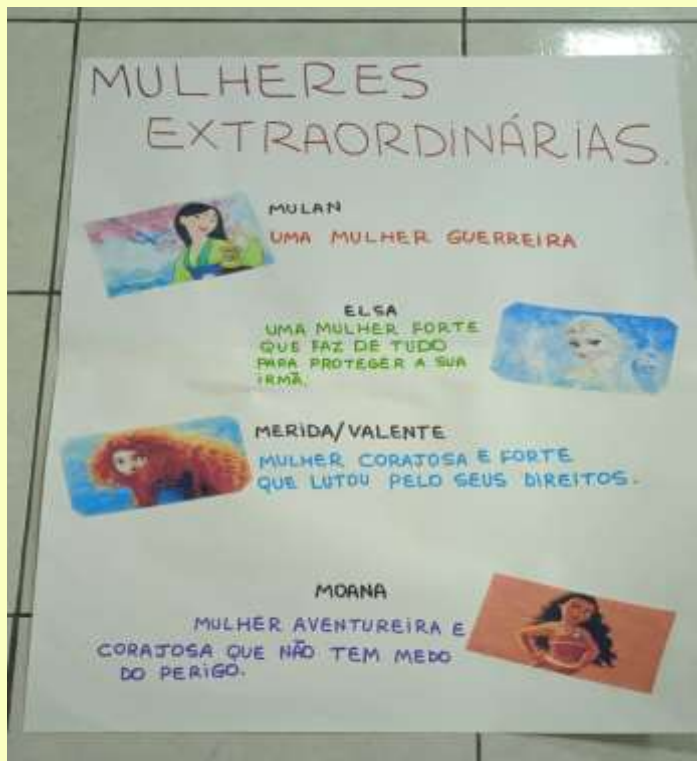 MULHERES
EXTRAORDINÁRIAS.
MULAN
UMA MULHER GUERREIRA
ELSA
UMA MULHER FORTE
QUE FAZ DE TUDO
PARA PROTEGER A SUA
IRMÃ.
MERIDA/VALENTE
MULHER CORAJOSA E FORTE
QUE LUTOU PELO SEUS DIREITOS.
MOANA
MULHER AVENTUREIRA E
CORAJOSA QUE NÃO TEM MEDO
DO PERIGO.